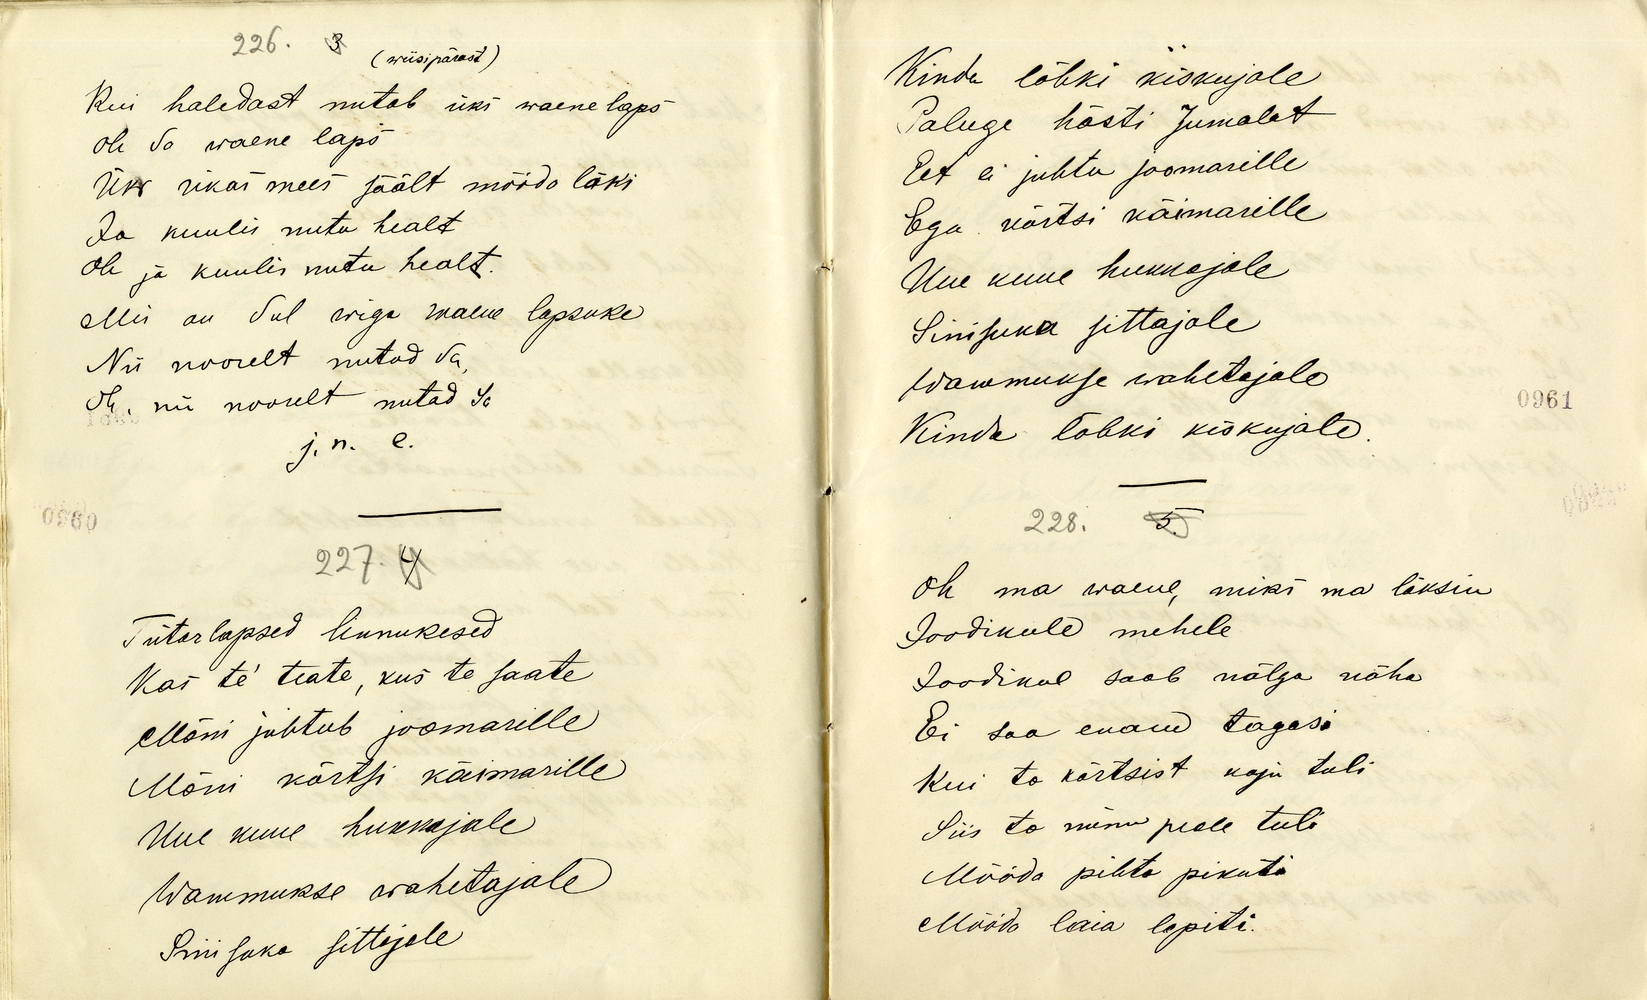 226. 3
(wiisipärast)
Kui haledast nutab üks waene laps
oh sa waene laps
Üks rikas mees säält mööda läks
Ja kuulis nutu healt
Oh ja kuulis nutu healt.
Mis on sul wiga waene lapsuke
Nii noorelt nutad sa,
Oh, nii noorelt nutad sa
j. n. e.
0960
227. 4
Tütarlapsed linnukesed
Kas te teate, kus te saate
Mõni juhtub joomarille
Mõni kõrtsi käimarille
Uue kuue hukkajale
Wammukse wahetajale
Sinisuka sittajale
Kinda lõhki kiskujale
Paluge hästi Jumalat
Eet ei juhtu joomarille
Ega kõrtsi käimarille
Uue kuue hukkajale
Sinisuka sittajale
Wammukse wahetajale
Kinda lõhki kiskujale.
0961
228. 5.
Oh ma waene, miks ma läksin
Joodikule mehele
Joodikul saab nälga näha
Ei saa enam tagasi
Kui ta kõrtsist koju tuli
Siis ta minu peale tuli
Mööda pihta pikuti
Mööda laia lapiti.